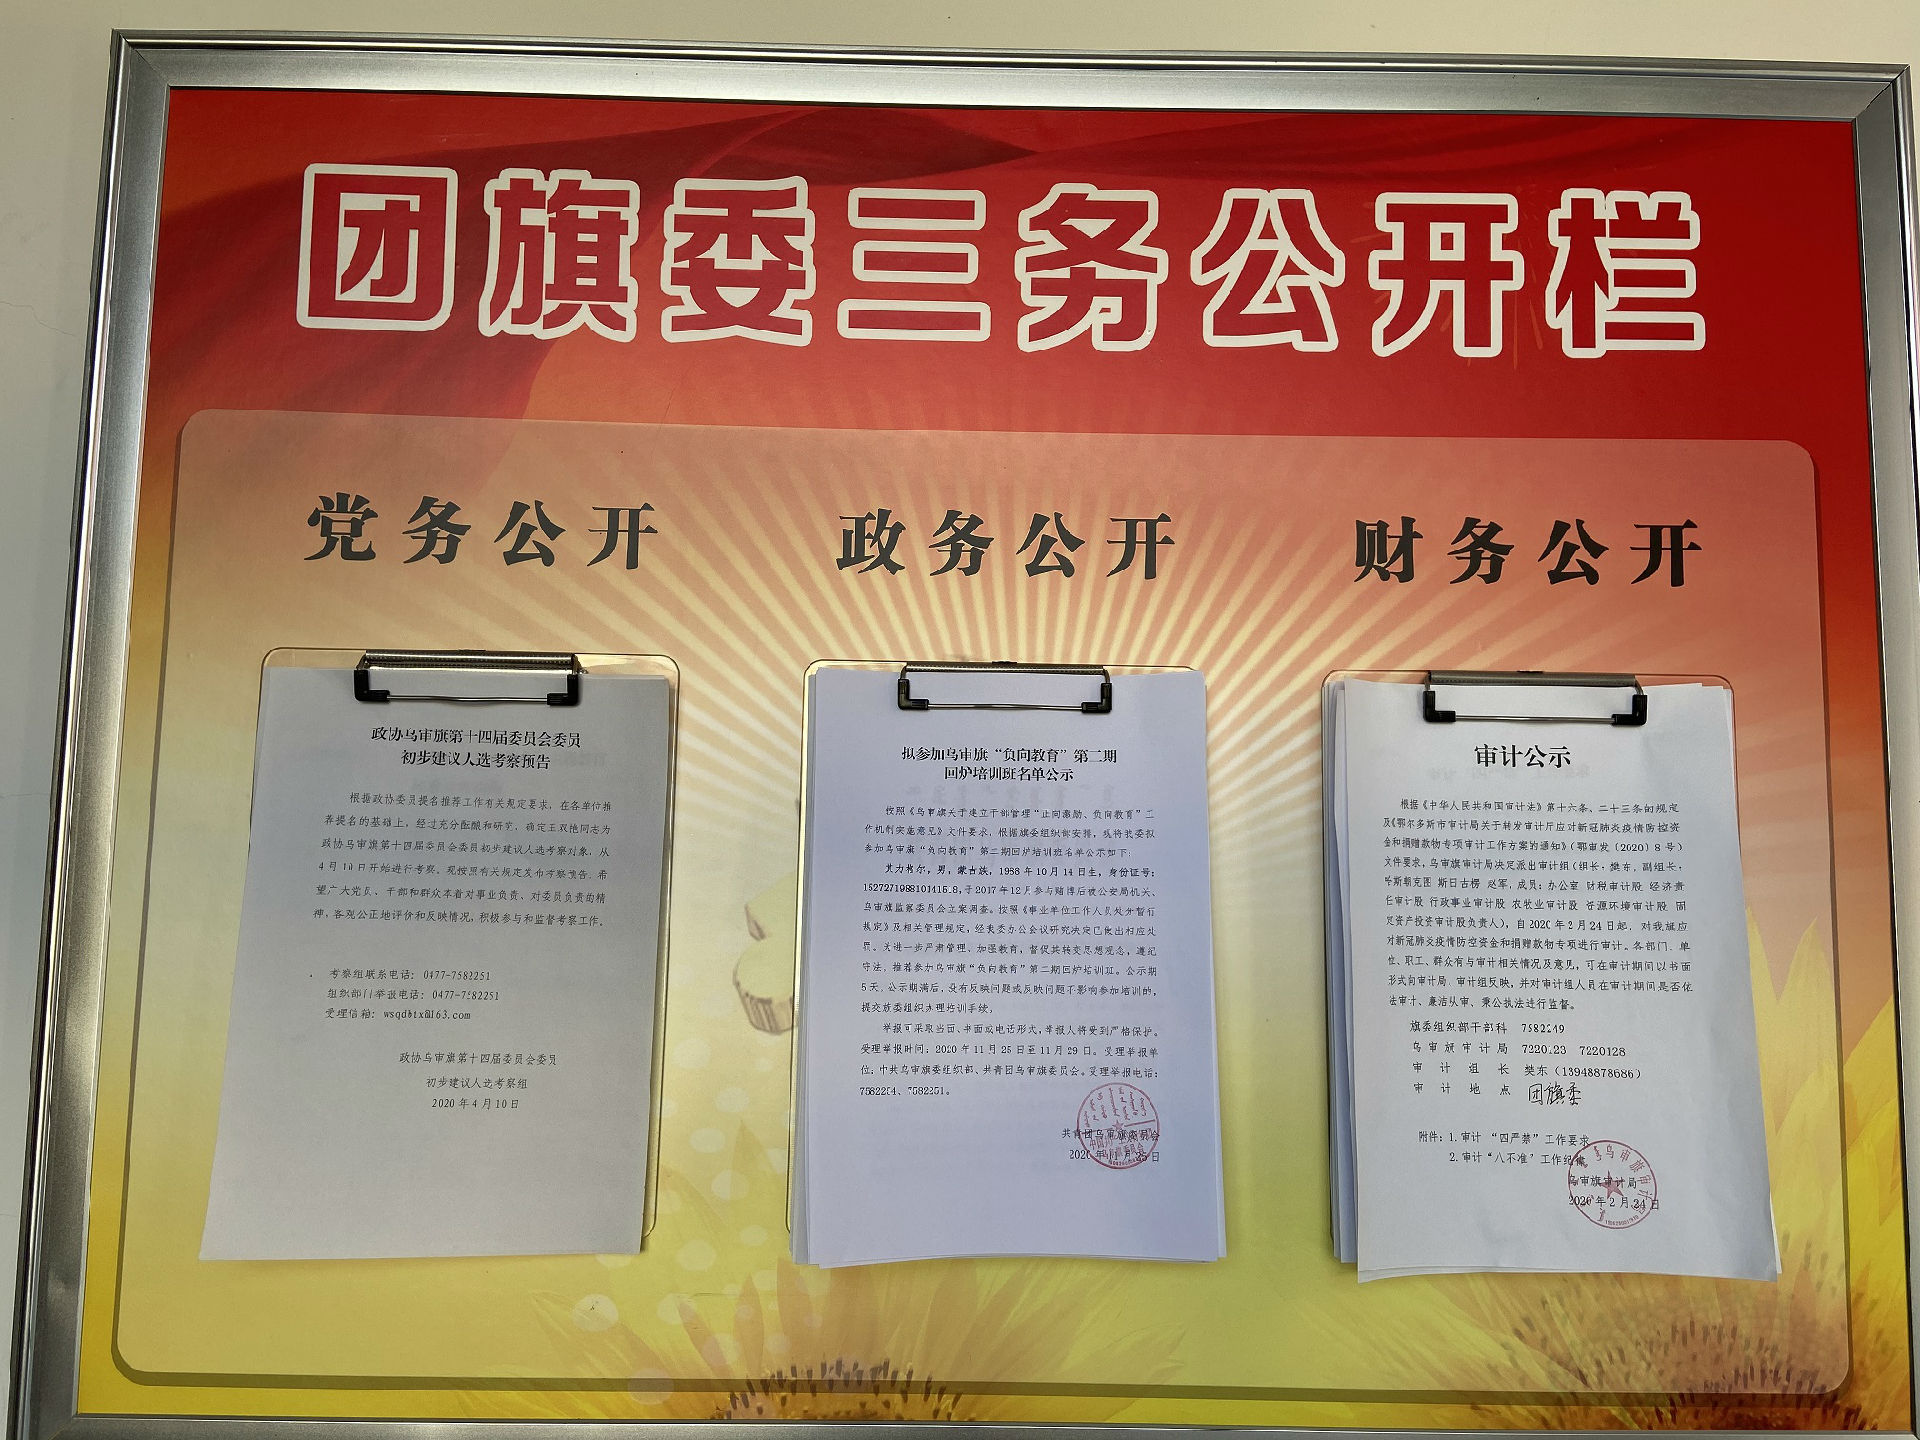 团旗委三务公开栏
党务公开
政务公开
财务公开
政协乌审旗第十四届委员会委员
初步建议人选考察预告
根据政协委员提名推荐工作有关规定要求，在各单位推
荐提名的基础上，经过充分酝酿和研究，确定王双艳同志为
政协乌审旗第十四届委员会委员初步建议人选考察对象，从
4月10日开始进行考察。现按照有关规定发布考察预告。希
望广大党员、干部和群众本着对事业负责、对委员负责的精
神，客观公正地评价和反映情况，积极参与和监督考察工作。
考察组联系电话：0477-7582251
组织部门举报电话：0477-7582251
受理信箱：wsqdbtx@163.com
政协乌审旗第十四届委员会委员
初步建议人选考察组
2020年4月10日
拟参加乌审旗“负向教育”第二期
回炉培训班名单公示
按照《乌审旗关于建立干部管理“正向激励、负向教育”工
作机制实施意见》文件要求，根据旗委组织部安排，现将我委拟
参加乌审旗“负向教育”第二期回炉培训班名单公示如下：
其力格尔，男，蒙古族，1988年10月14日生，身份证号：
，于2017年12月参与赌博后被公安局机关、
乌审旗监察委员会立案调查。按照《事业单位工作人员处分暂行
规定》及相关管理规定，经我委办公会议研究决定已做出相应处
罚。为进一步严肃管理、加强教育，督促其转变思想观念，遵纪
守法，推荐参加乌审旗“负向教育”第二期回炉培训班。公示期
5天，公示期满后，没有反映问题或反映问题不影响参加培训的，
提交旗委组织办理培训手续。
举报可采取当面、书面或电话形式，举报人将受到严格保护。
受理举报时间：2020年11月25日至11月29日。受理举报单
位：中共乌审旗委组织部、共青团乌审旗委员会。受理举报电话：
7582254、7582251。
共青团乌审旗委员会
2020年11月25日
审计公示
根据《中华人民共和国审计法》第十六条、二十三条的规定
及《鄂尔多斯市审计局关于转发审计厅应对新冠肺炎疫情防控资
金和捐赠款物专项审计工作方案的通知》（鄂审发〔2020〕8号）
文件要求，乌审旗审计局决定派出审计组（组长：樊东，副组长：
哈斯朝克图 斯日古楞 赵军，成员：办公室 财税审计股 经济责
任审计股 行政事业审计股 农牧业审计股 资源环境审计股 固
定资产投资审计股负责人），自2020年2月24日起，对我旗应
对新冠肺炎疫情防控资金和捐赠款物专项进行审计。各部门、单
位、职工、群众有与审计相关情况及意见，可在审计期间以书面
形式向审计局、审计组反映，并对审计组人员在审计期间是否依
法审计、廉洁从审、秉公执法进行监督。
旗委组织部干部科 7582249
乌审旗审计局 7220123 7220128
审计组长 樊东（13948878686）
审计地点 团旗委
附件：1.审计“四严禁”工作要求
2.审计“八不准”工作纪律
乌审旗审计局
2020年2月24日